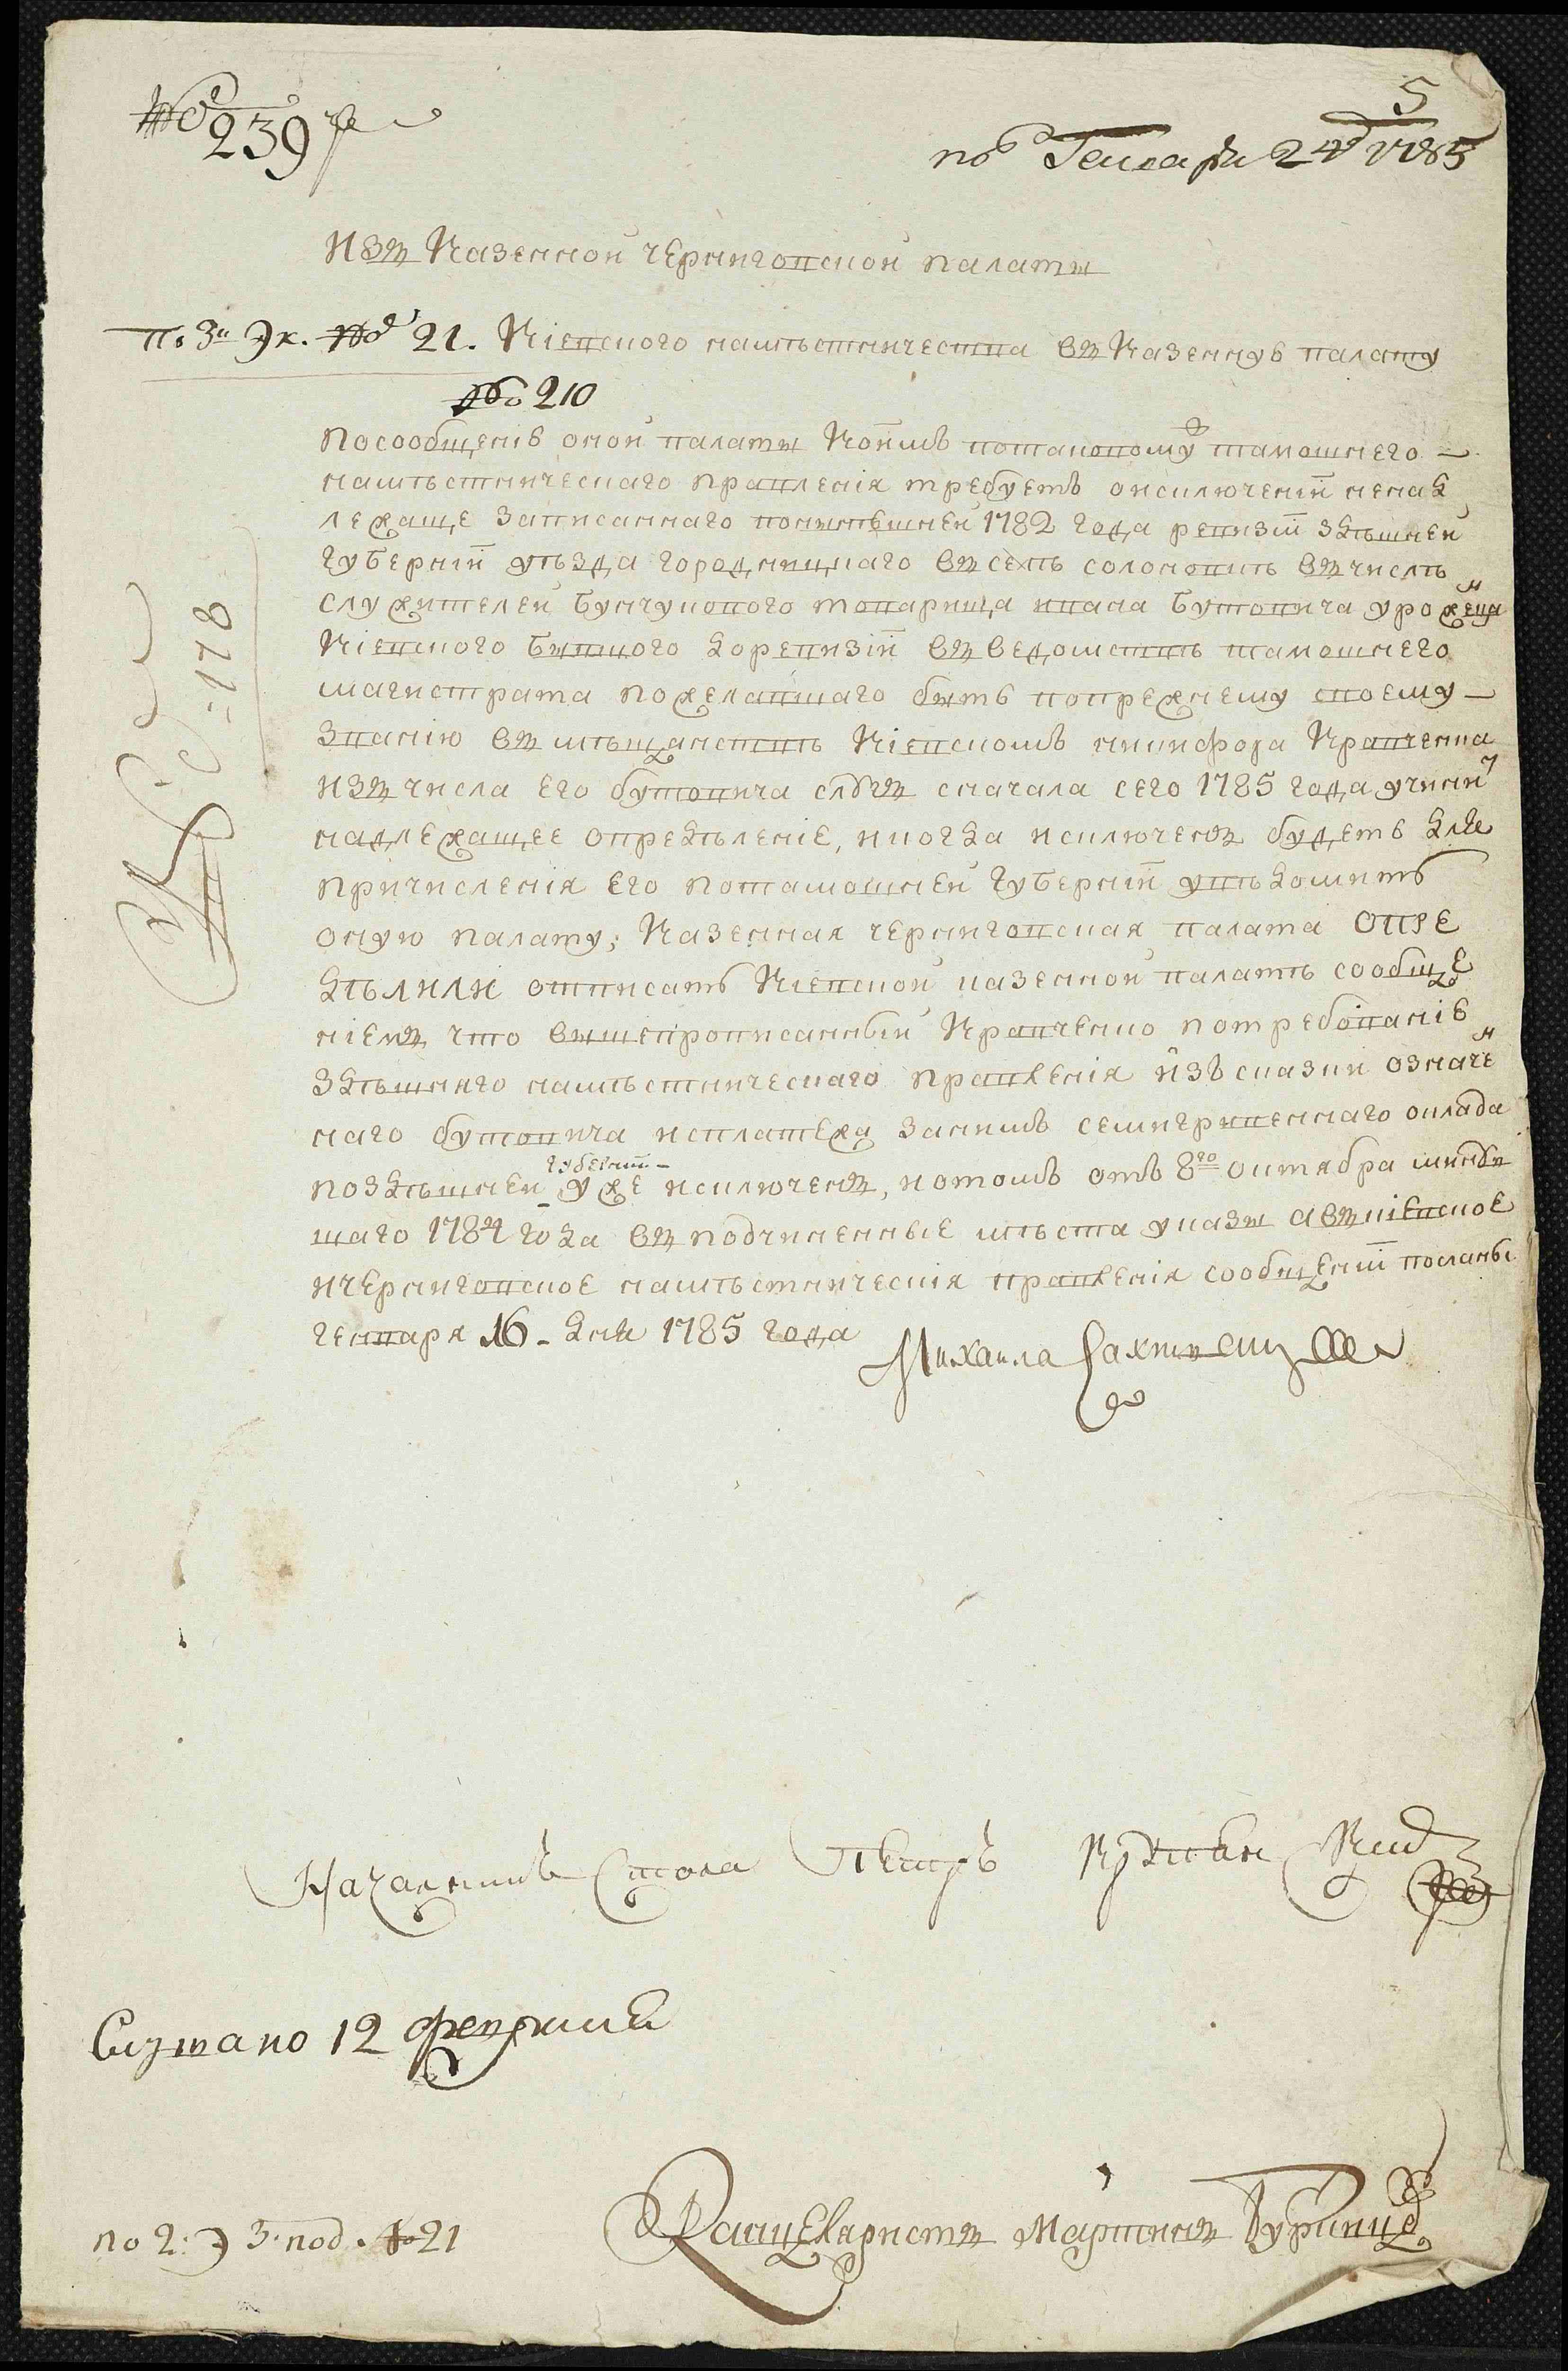 № 239
5
по Генваря 24 1785
Изъ Казенной черниговской палаты
по 3й Эк. № 21. Кіевского намѣстничества въ Казенную палату
№ 210
посообщенію оной палаты коимъ потаковому тамошнего
намѣстническаго правленія требуетъ оисключеніи ненад
лежаще записаннаго понынѣшней 1782 года ревизіи здѣшней
губерніи уѣзда городницкаго въ селѣ солоновкѣ въ числѣ
служителей бунчукового товарища ивана Бутовича уроженца
Кіевского бывшого доревизіи въ ведомствѣ тамошнего
магистрата пожелавшаго быть попрежнему своему
званію въ мѣщанствѣ Кіевскомъ никифора Кравченка
изъ числа его бутовича слугъ сначала сего 1785 года учинить
надлежащее опредѣленіе, икогда исключенъ будетъ для
причисленія его потамошней губерніи увѣдомить
оную палату; Казенная черниговская палата опре
дѣлили отписать Кіевской казенной палатѣ сообще
ніемъ что вышепрописанный Кравченко потребованію
здѣшняго намѣстническаго правленія изъ сказки означен
наго бутовича исплатежа занимъ семигривенного оклада
поздѣшней губерніи уже исключенъ, иотомъ отъ 8го октября минув
шаго 1784 года въ подчиненные мѣста указы авкіевское
ичерниговское намѣстническія правленія сообщеніи посланы
генваря 16 дня 1785 года
Михаила
Началникъ стола Петръ
Слушано 12 февраля
по 2: Э 3. под. № 21
Канцеляристъ Мартинъ